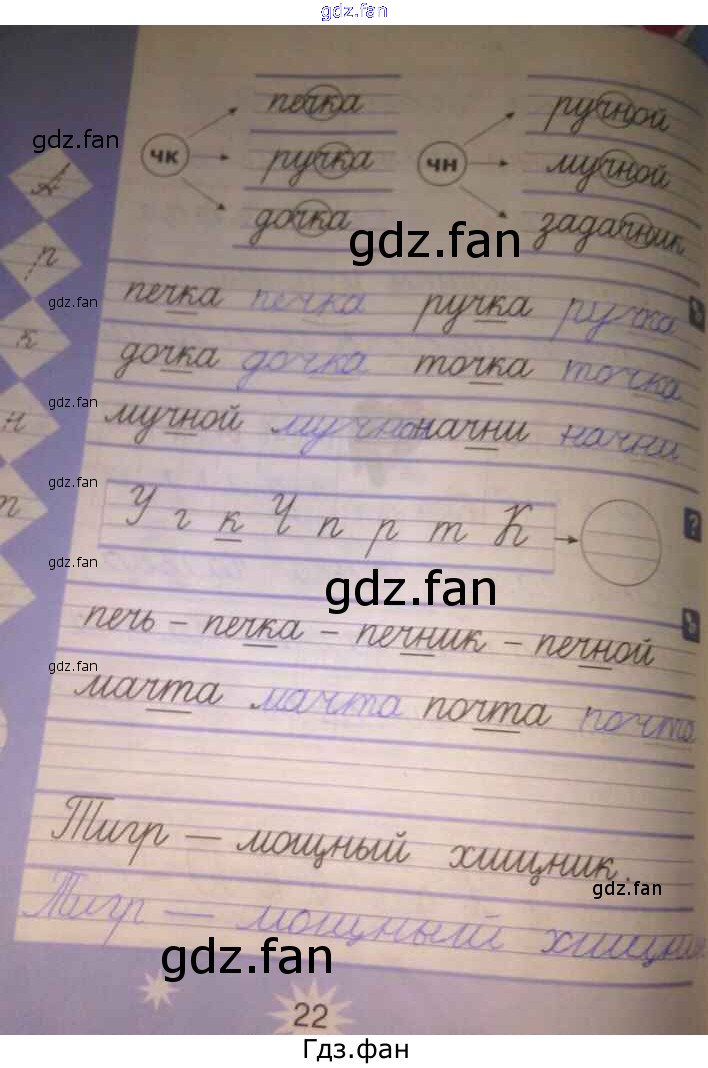 gdz.fan
печка ручной
gdz.fan
чк ручка чн мучной
дочка задачник
gdz.fan
А
р
к
н
т
печка печка ручка ручка
gdz.fan
дочка дочка точка точка
gdz.fan
мучной мучной начни начни
gdz.fan
У г к Ч п р т К
?
gdz.fan
gdz.fan
печь – печка – печник – печной
gdz.fan
мачта мачта почта почта
Тигр — мощный хищник.
gdz.fan
Тигр — мощный хищник
gdz.fan
22
Гдз.фан